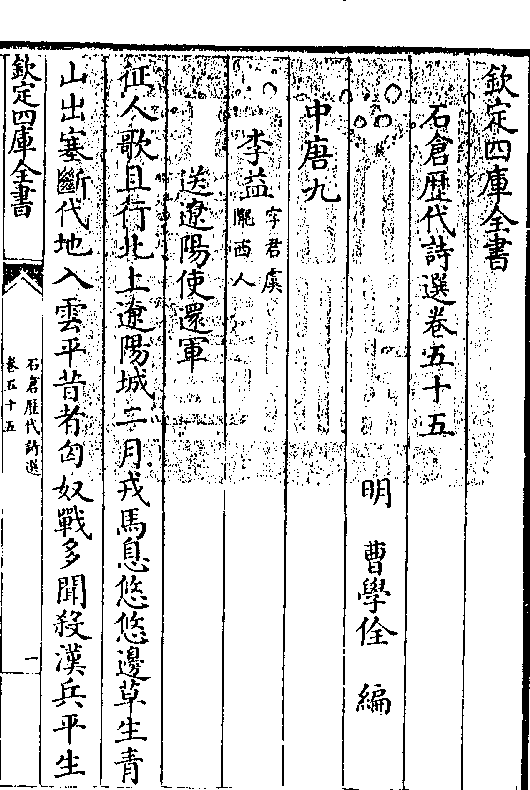 欽定四庫全書
石倉歷代詩選卷五十五
明　曹學佺　編
中唐九
李益字君虞隴西人
送遼陽使還軍
征人歌且行北上遼陽城二月戎馬息悠悠邊草生青
山出塞斷代地入雲平昔者匈奴戰多聞殺漢兵平生
欽定四庫全書
石倉歷代詩選
卷五十五
一